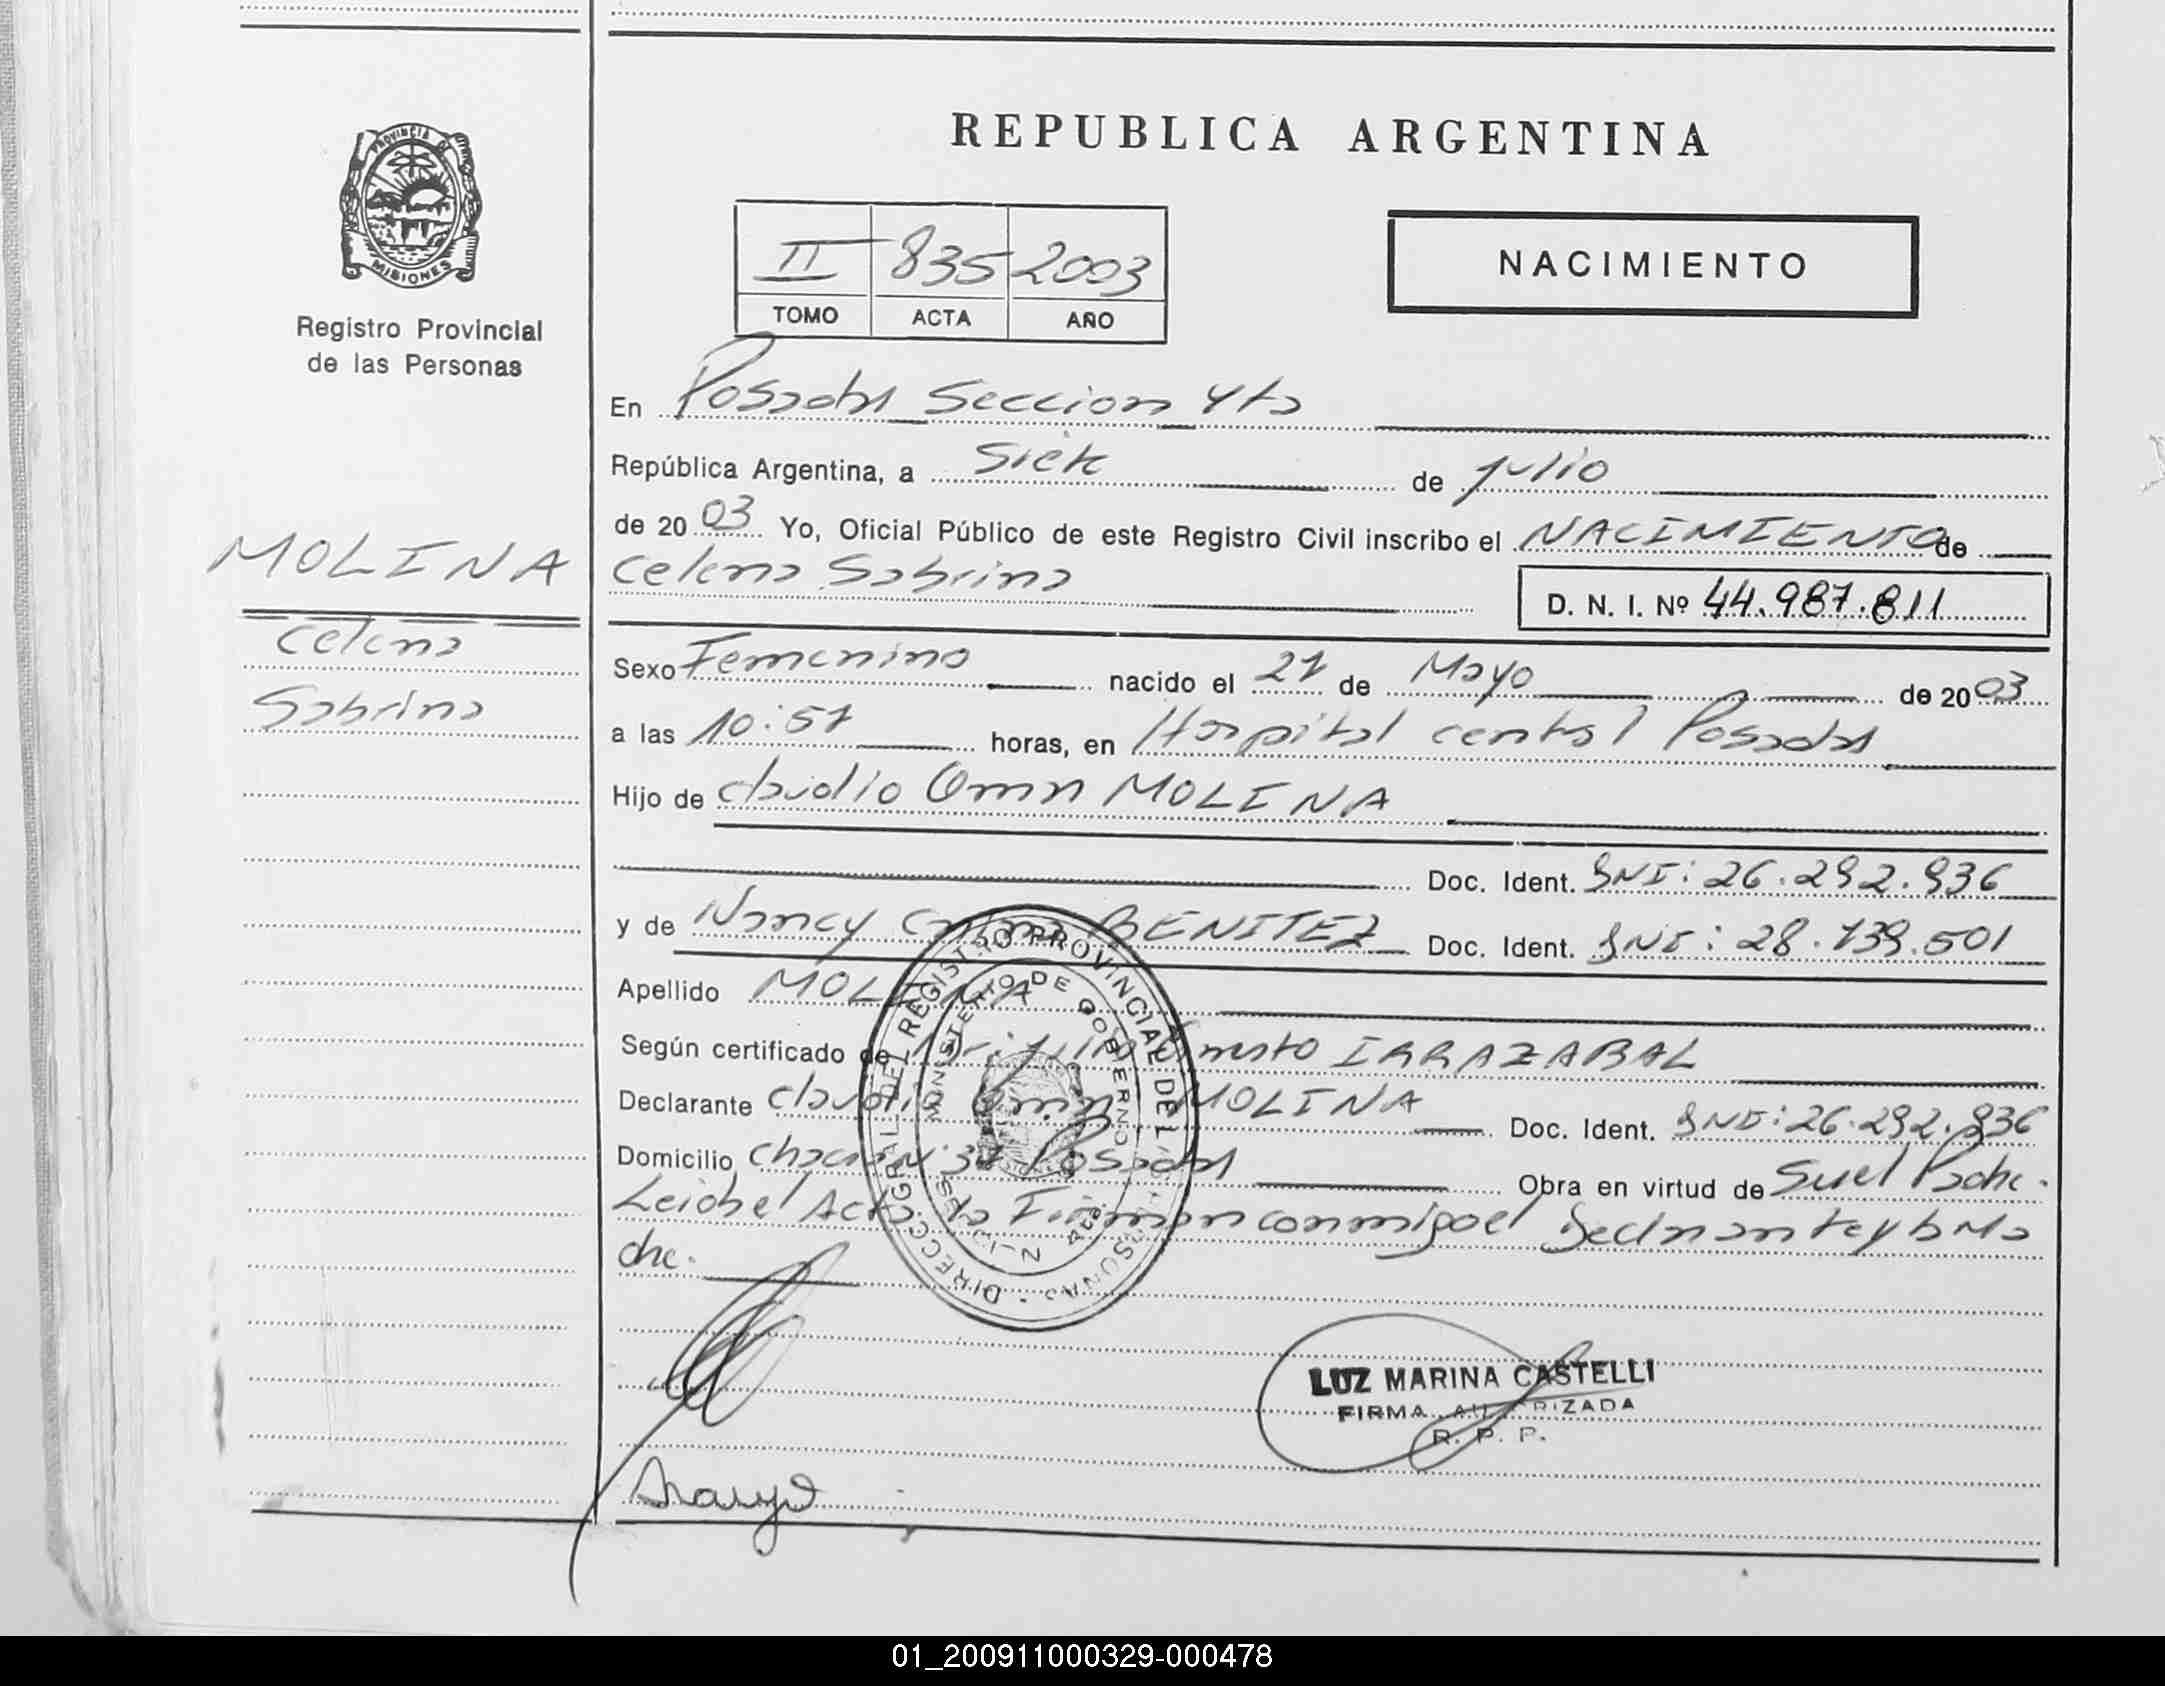 PROVINCIA DE
MISIONES
Registro Provincial
de las Personas
MOLINA
Celena
Sabrina
REPUBLICA ARGENTINA
II 835 2003
TOMO ACTA AÑO
NACIMIENTO
En Posadas Seccion 4ta
República Argentina, a Siete de julio
de 2003 Yo, Oficial Público de este Registro Civil inscribo el NACIMIENTO de
Celena Sabrina D. N. I. Nº 44.987.811
Sexo Femenino nacido el 27 de Mayo de 2003
a las 10:57 horas, en Hospital central Posadas
Hijo de Claudio Omar MOLINA
Doc. Ident. DNI: 26.292.936
y de Nancy BENITEZ Doc. Ident. DNI: 28.139.501
Apellido MOLINA
Según certificado de Ernesto IRRAZABAL
Declarante Claudio Omar MOLINA Doc. Ident. DNI: 26.292.936
Domicilio Posadas Obra en virtud de Su el Padre.
Leida el Acta Firman conmigo el Declarante y la Ma
dre.
DIRECC. GRAL. DEL REGISTRO PROVINCIAL DE LAS PERSONAS
MINISTERIO DE GOBIERNO
LUZ MARINA CASTELLI
FIRMA AUTORIZADA
R. P. P.
01_200911000329-000478